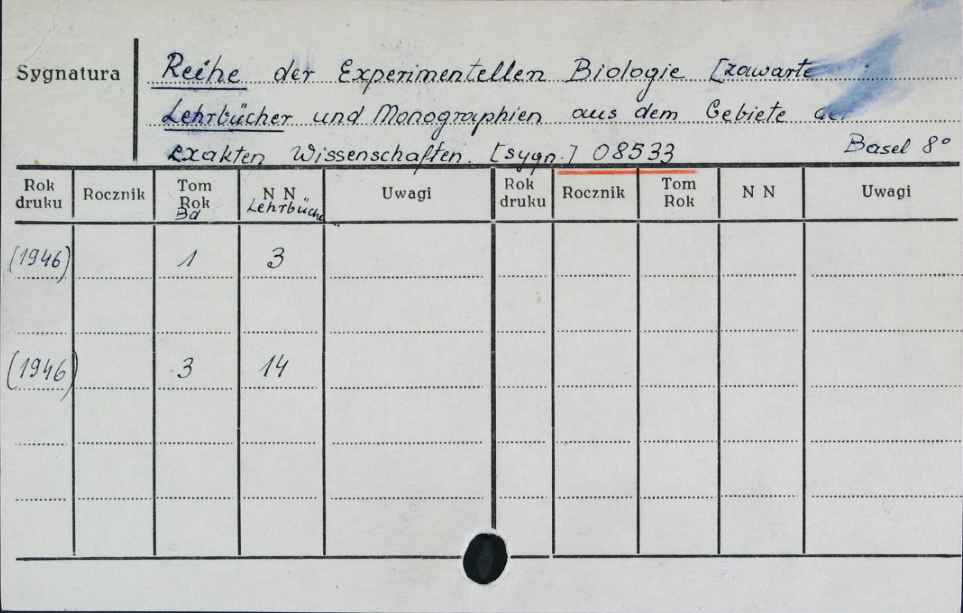 Sygnatura
Reihe der Experimentellen Biologie [zawarte
Lehrbücher und Monographien aus dem Gebiete der
exakten Wissenschaften. [sygn.] 08533 Basel 8°
Rok druku Rocznik Tom Rok Bd N N Lehrbüche Uwagi Rok druku Rocznik Tom Rok N N Uwagi
(1946) 1 3
(1946) 3 14